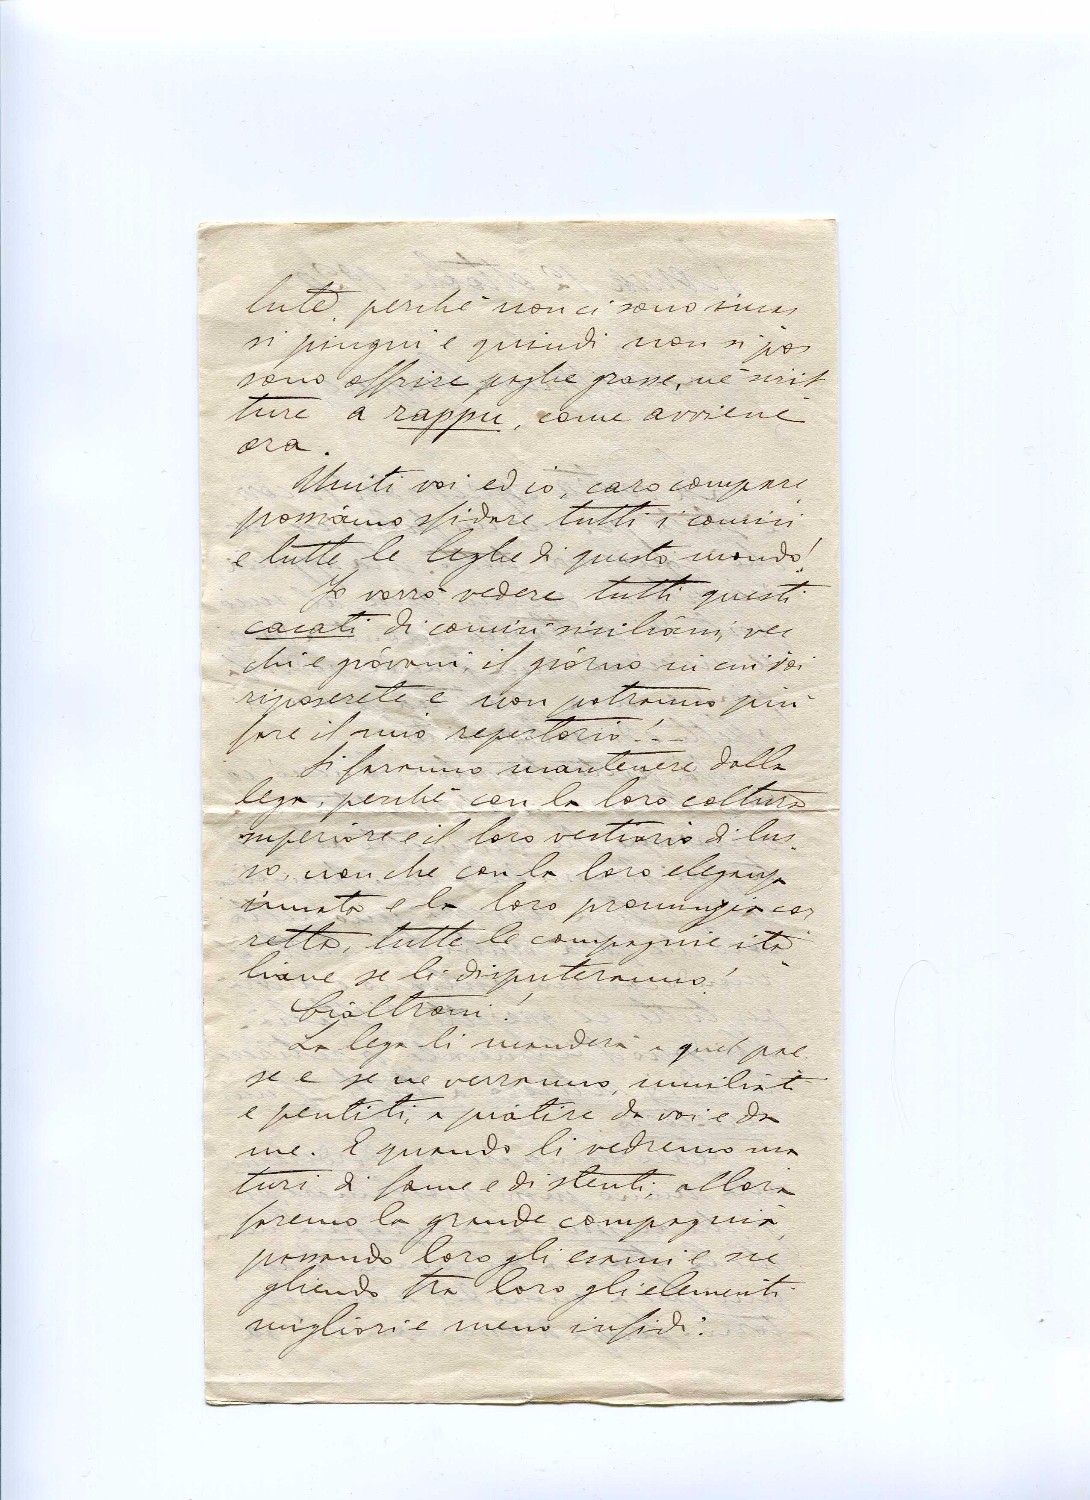 lute, perché non ci sono incas
si pingui e quindi non si pos
sono offrire paghe grasse, né scrit
ture a rappu, come avviene
ora.
Uniti voi ed io, caro compare,
possiamo sfidare tutti i comici
e tutte le leghe di questo mondo!
Io vorrò vedere tutti questi
cacati di comici siciliani, vec
chi e giovani, il giorno in cui voi
riposerete e non potranno più
fare il mio repertorio!..
Si faranno mantenere dalla
lega, perché con la loro coltura
superiore e il loro vestiario di lus
so, non che con la loro eleganza
innata e la loro pronunzia cor
retta, tutte le compagnie ita
liane se li disputeranno!
Cialtroni!
La lega li manderà a quel pae
se e se ne verranno, umiliati
e pentiti, a piatire da voi e da
me. E quando li vedremo ma
turi di fame e di stenti, allora
faremo la grande compagnia,
passando loro gli esami e sce
gliendo tra loro gli elementi
migliori e meno infidi.